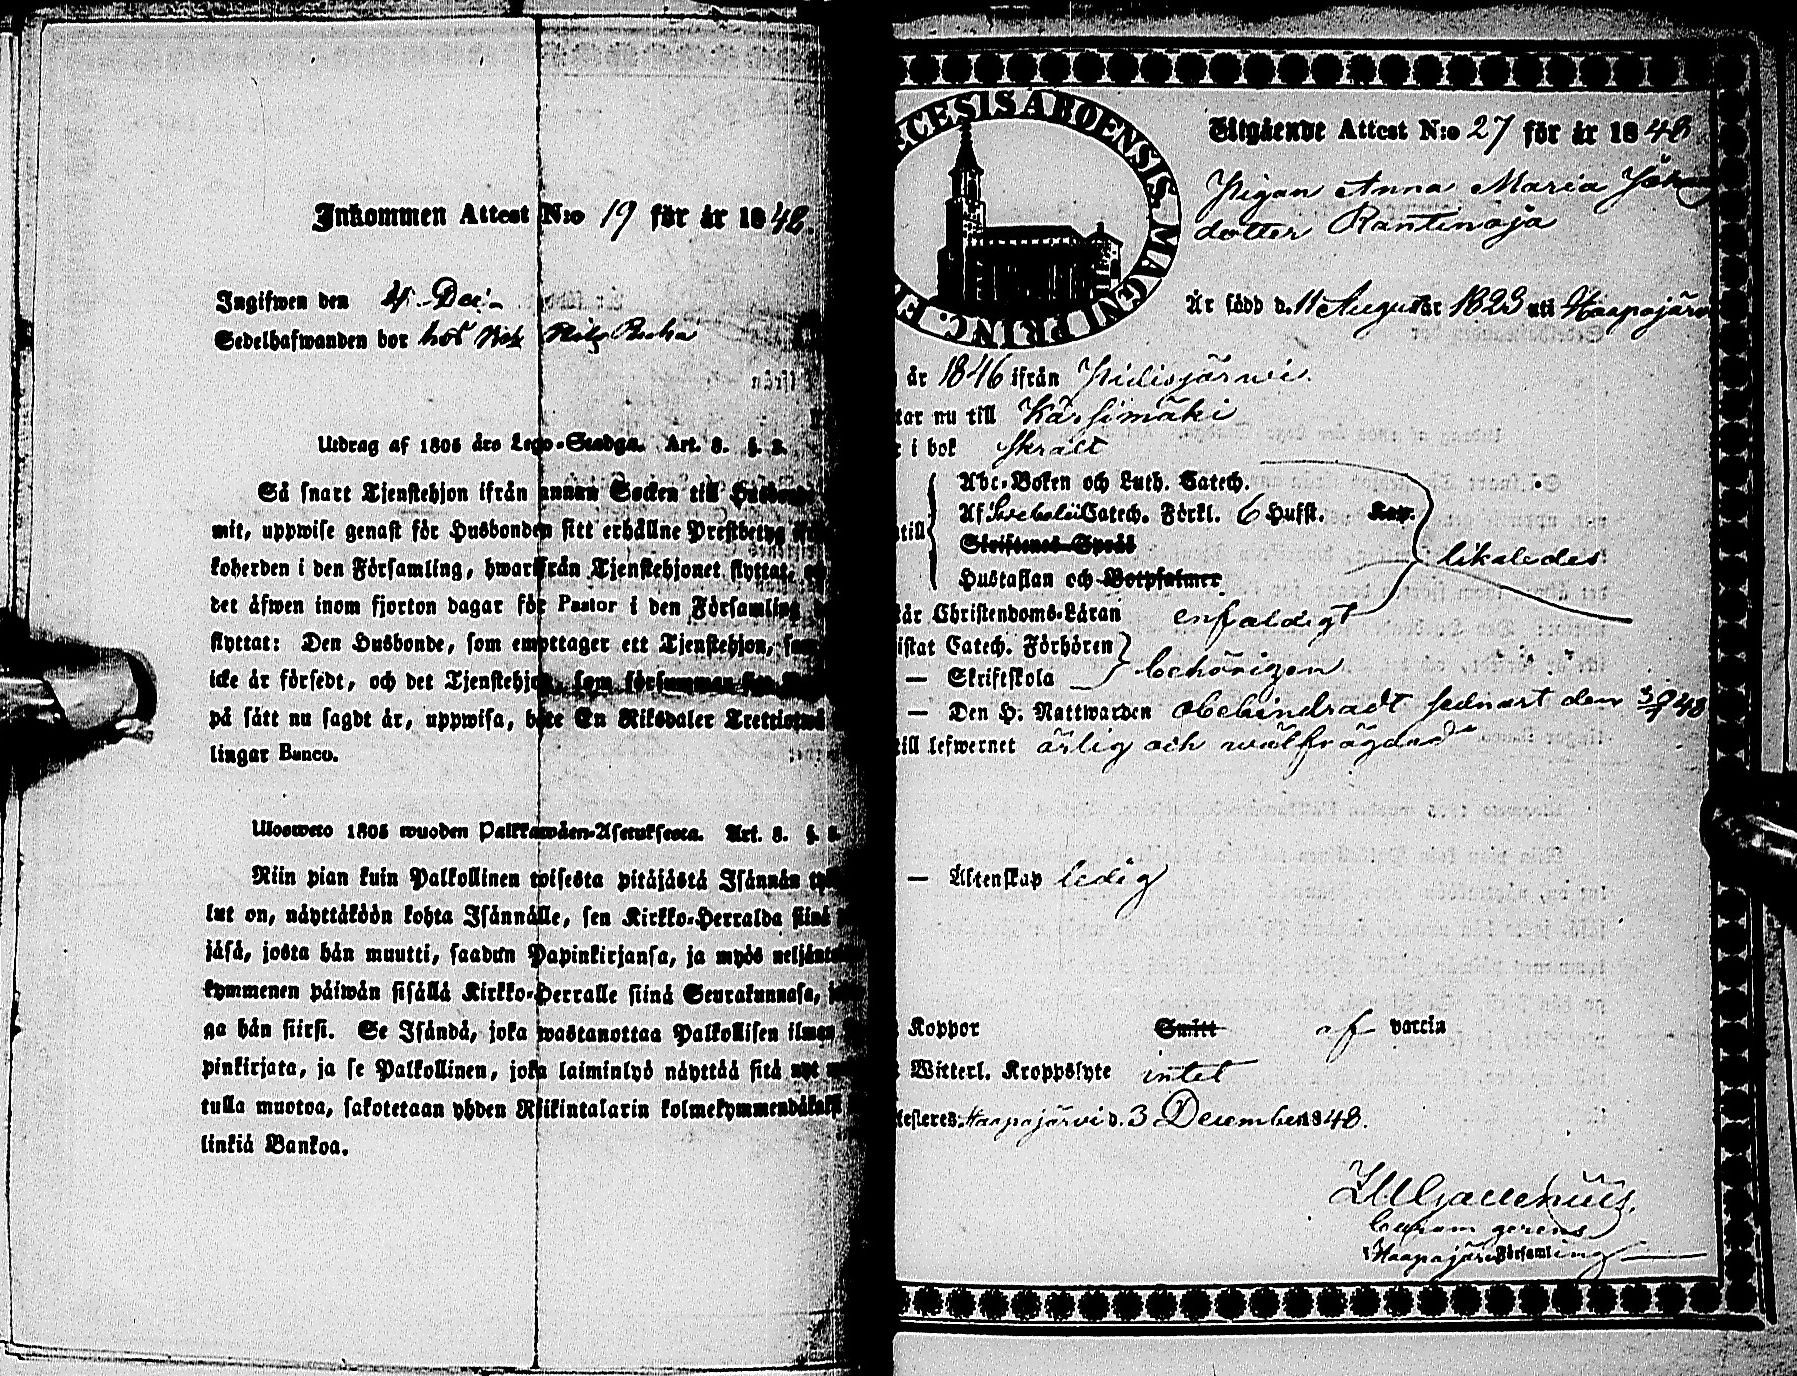 Inkommen Attest N:o 19 för år 1848.
Ingifwen den 4 Dec:
Sedelhafwanden bor hos
Utdrag af 1805 års Lego-Stadga. Art. 8. §. 2.
Så snart Tjenstehjon ifrån annan Socken till
mit, uppwise genast för Husbonden sitt erhållne Prestbetyg
koherden i den Församling, hwarifrån Tjenstehjonet flyttat,
det äfwen inom fjorton dagar för Pastor i den Församling,
flyttat: Den Husbonde, som emottager ett Tjenstehjon, som
icke är försedt, och det Tjenstehjon, som försummar
på sätt nu sagdt är, uppwisa, böte En Riksdaler Trettiotwå
lingar Banco.
Ulosweto 1805 wuoden Palkkawäen-Asetuksesta. Art. 8. §. 2.
Niin pian kuin Palkollinen toisesta pitäjästä Isännän
lut on, näyttäköön kohta Isännälle, sen Kirkko-Herralda siinä
jäsä, josta hän muutti, saadun Papinkirjansa, ja myös neljäntoista
kymmenen päiwän sisällä Kirkko-Herralle siinä Seurakunnasa,
ga hän siirsi. Se Isändä, joka wastanottaa Palkollisen ilman
pinkirjata, ja se Palkollinen, joka laiminlyö näyttää sitä nyt
tulla muotoa, sakotetaan yhden Riikintalarin kolmekymmendäkaksi
linkiä Bankoa.
ECESIS ABOENSIS. MAGNI PRINC. F
Utgående Attest N:o 27 för år 1848
Pigan Anna Maria Johans
dotter Rantinoja
Är född d. 11 August år 1823 uti Haapajärvi
år 1846 ifrån Pidisjärwi.
tar nu till Kärsämäki
i bok skralt
Abc-Boken och Luth. Catech.
Af Swebelii Catech. Förkl. 6 Hufst. Kap.
Skriftenes Språk
till
Hustaflan och Botpsalmer
likaledes.
är Christendoms-Läran enfaldigt
istat Catech. Förhören
— Skriftskola
behörigen
— Den H. Nattwarden obehindradt sednast den 3/9 48
till lefwernet ärlig och wälfrägdad
— Äktenskap ledig
Koppor Smitt af vaccin
Witterl. Kroppslyte intet
testeres. Haapajärvi d. 3 December 1848.
Curam gerens
i Haapajärvi Församling